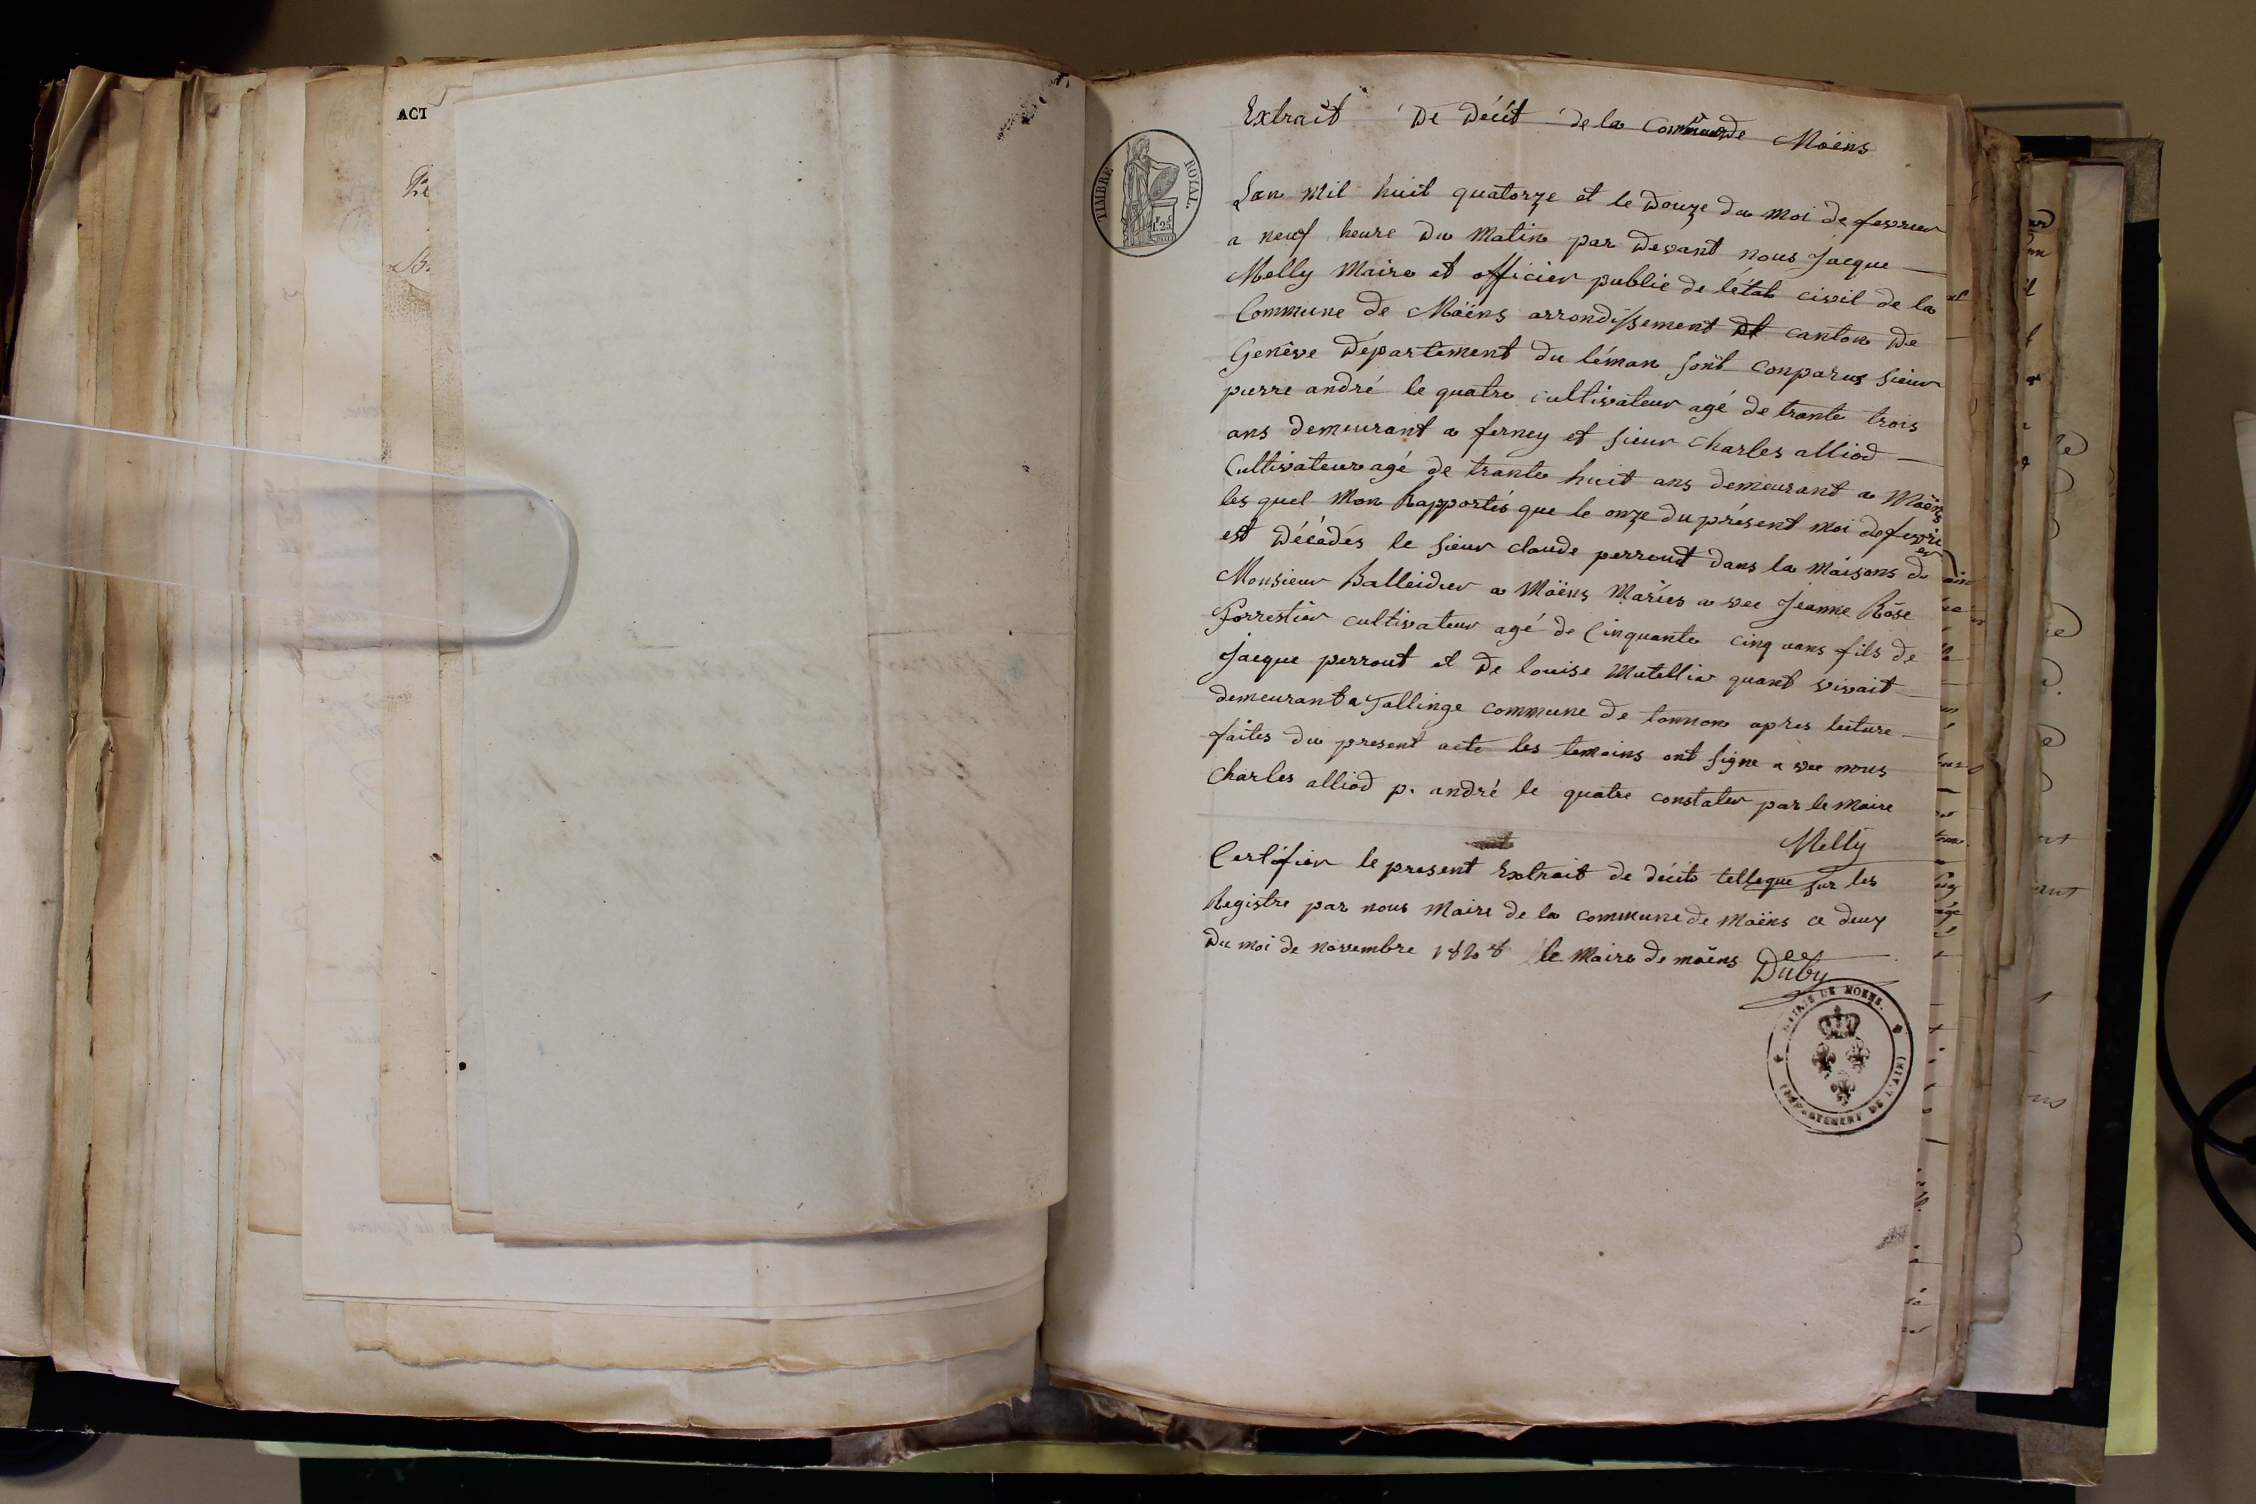 ACT
TIMBRE ROYAL.
1.25
Extrait De Décét de la Commune de Moëns
Lan mil huit quatorze et le Douze du moi de fevrier
a neuf heure Du Matin par Devant nous Jacque
Melly Maire et officier public de létat civil de la
Commune de Moëns arrondissement et canton De
Genêve Département du léman sont conparus sieur
pierre andré le quatre cultivateur agé de trante trois
ans demeurant a ferney et sieur Charles alliod
Cultivateur agé de trante huit ans demeurant a Moëns
les quel Mon Rapportés que le onze du présent moi de fevrier
est Décédés le sieur claude perrout dans la maisons de
Monsieur Balleidier a Moëns Maries a vec Jeanne Rose
Forrestier cultivateur agé de Cinquante cinq ans fils de
Jacque perrout et De louise Mutellier quant vivait
demeurant a Tallinge commune de tonnon apres lecture
faites du present acte les temoins ont signe a vec nous
Charles alliod p. andré le quatre constater par le Maire
Melly
Certifier le present Extrait de décét telle que sur les
Registre par nous Maire de la commune de Moëns ce deux
Du moi de novembre 1828 le Maire de moëns Duby
MAIRIE DE MOENS.
(DÉPARTEMENT DE L'AIN)